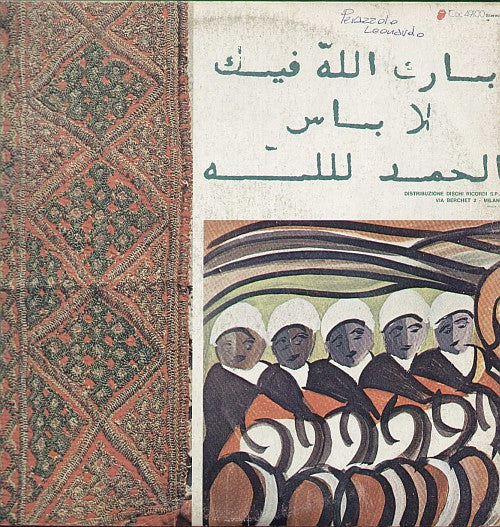 Perazzolo
Leonardo
بارك اللّه فيك
لا باس
الحمد لللّه
DISTRIBUZIONE DISCHI RICORDI S.P.
VIA BERCHET 2 - MILAN